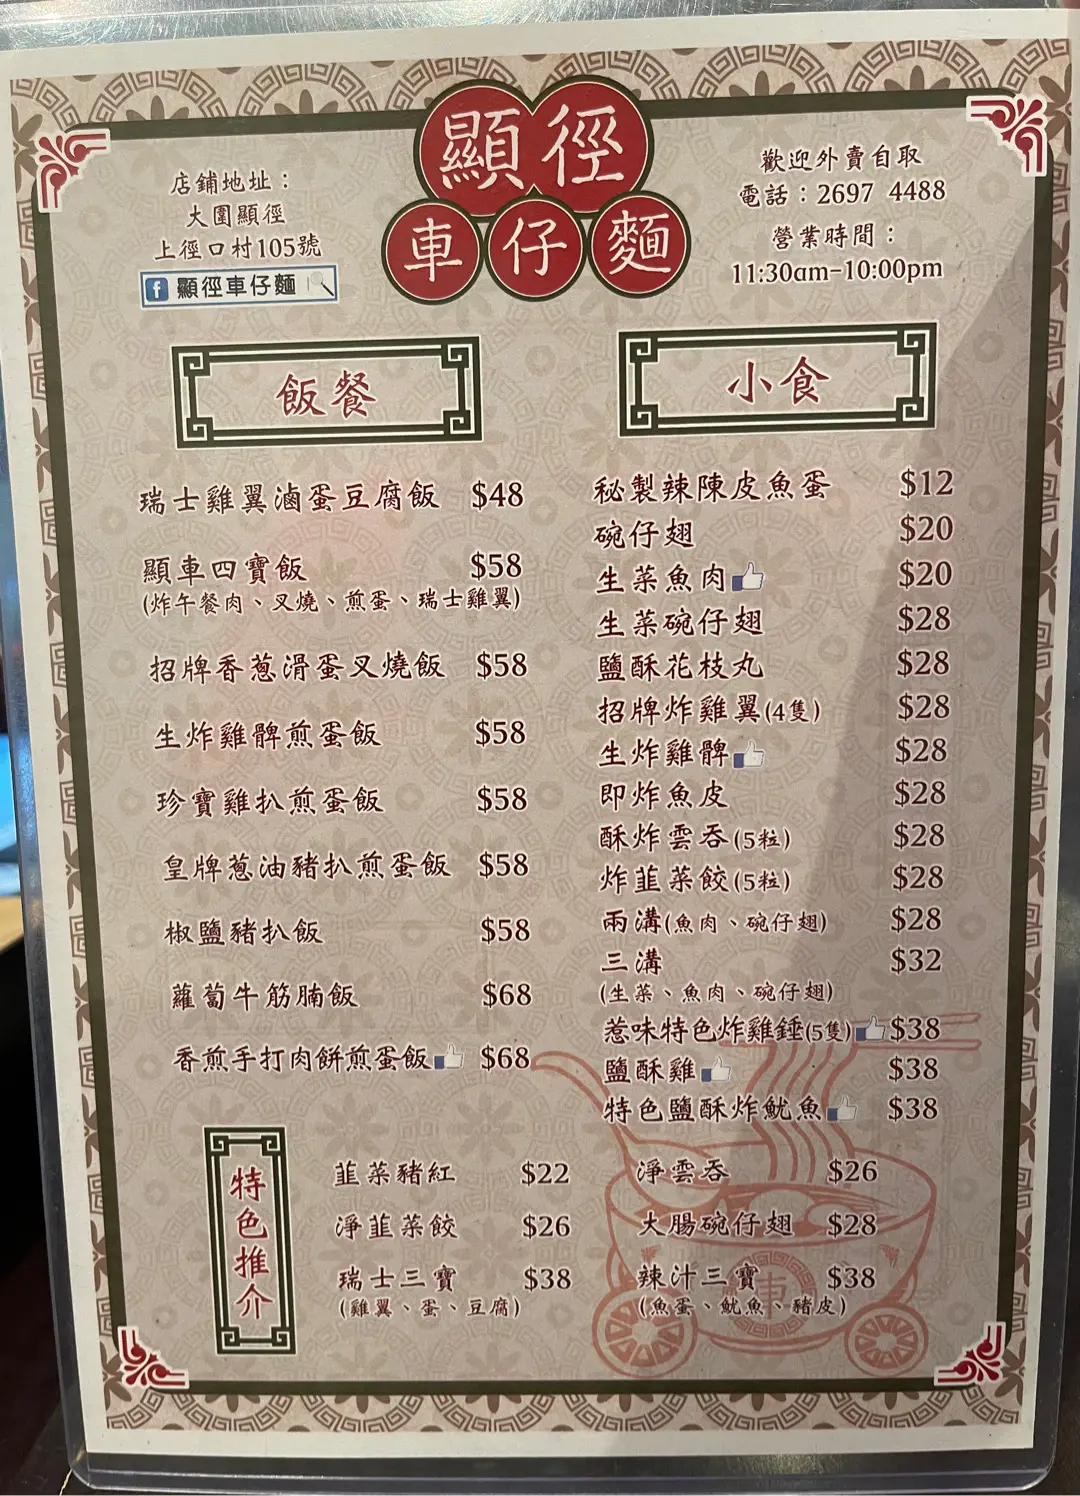 顯徑
車仔麵
店鋪地址：
大圍顯徑
上徑口村105號
f 顯徑車仔麵
歡迎外賣自取
電話：2697 4488
營業時間：
11:30am-10:00pm
飯餐
瑞士雞翼滷蛋豆腐飯 $48
顯車四寶飯 $58
(炸午餐肉、叉燒、煎蛋、瑞士雞翼)
招牌香蔥滑蛋叉燒飯 $58
生炸雞髀煎蛋飯 $58
珍寶雞扒煎蛋飯 $58
皇牌蔥油豬扒煎蛋飯 $58
椒鹽豬扒飯 $58
蘿蔔牛筋腩飯 $68
香煎手打肉餅煎蛋飯 $68
小食
秘製辣陳皮魚蛋 $12
碗仔翅 $20
生菜魚肉 $20
生菜碗仔翅 $28
鹽酥花枝丸 $28
招牌炸雞翼(4隻) $28
生炸雞髀 $28
即炸魚皮 $28
酥炸雲吞(5粒) $28
炸韮菜餃(5粒) $28
兩溝(魚肉、碗仔翅) $28
三溝 $32
(生菜、魚肉、碗仔翅)
惹味特色炸雞錘(5隻) $38
鹽酥雞 $38
特色鹽酥炸魷魚 $38
特色推介
韮菜豬紅 $22
淨韮菜餃 $26
瑞士三寶 $38
(雞翼、蛋、豆腐)
淨雲吞 $26
大腸碗仔翅 $28
辣汁三寶 $38
(魚蛋、魷魚、豬皮)
車